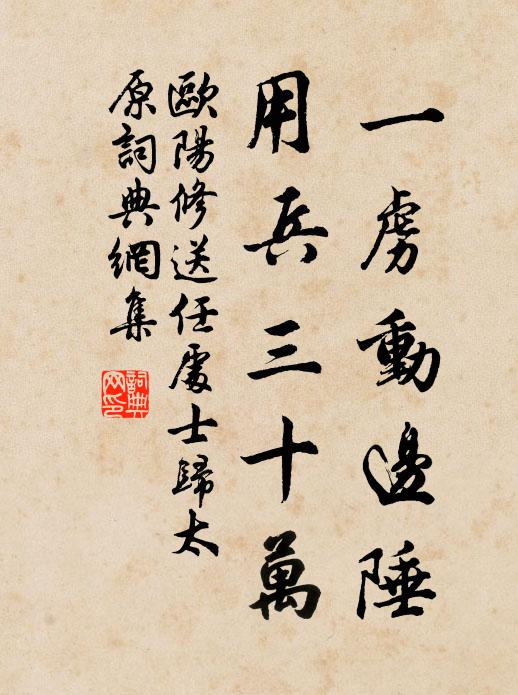 一虜動邊陲
用兵三十萬
歐陽修送任處士歸太
原詞典網集
詞典
网印